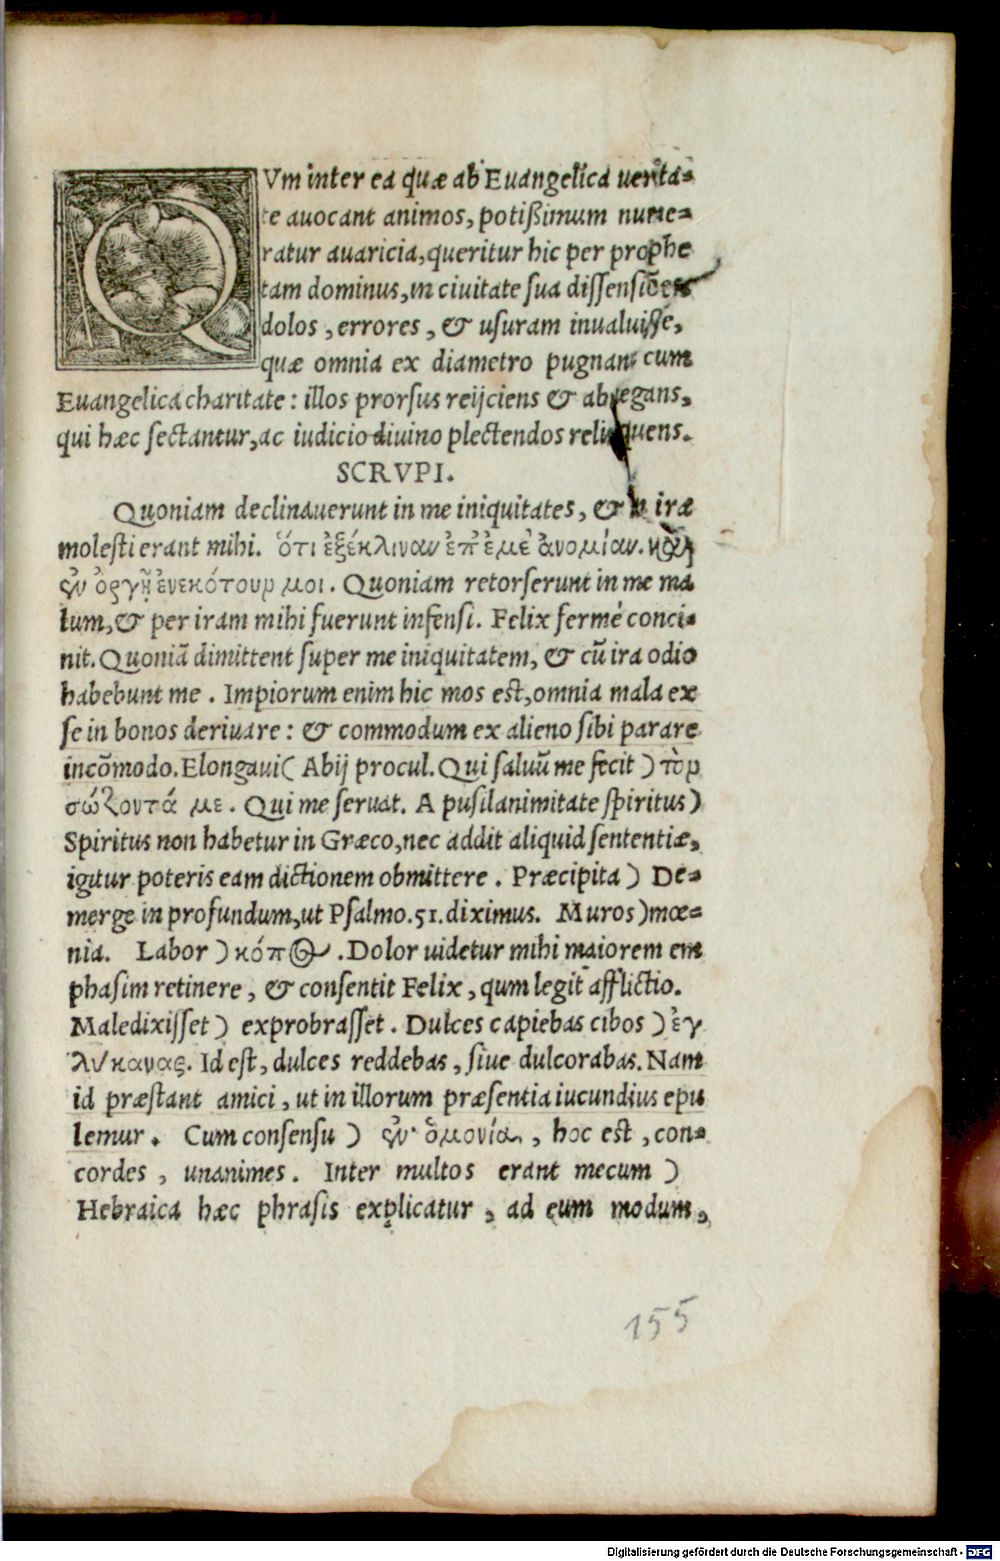 QVm inter ea quæ ab Euangelica uerita-
te auocant animos, potißimum nume-
ratur auaricia, queritur hic per prophe
tam dominus, in ciuitate sua dissensiões
dolos, errores, & usuram inualuisse,
quæ omnia ex diametro pugnant cum
Euangelica charitate: illos prorsus reijciens & abnegans,
qui hæc sectantur, ac iudicio diuino plectendos relinquens.
SCRVPI.
Quoniam declinauerunt in me iniquitates, & in iræ
molesti erant mihi. ὅτι ἐξέκλιναν ἐπ' ἐμὲ ἀνομίαν. καὶ
ἐν ὀργῇ ἐνεκότουν μοι. Quoniam retorserunt in me ma
lum, & per iram mihi fuerunt infensi. Felix fermè conci-
nit. Quoniā dimittent super me iniquitatem, & cū ira odio
habebunt me. Impiorum enim hic mos est, omnia mala ex
se in bonos deriuare: & commodum ex alieno sibi parare
incōmodo. Elongaui( Abij procul. Qui saluū me fecit ) τὸν
σώζοντά με. Qui me seruat. A pusilanimitate spiritus)
Spiritus non habetur in Græco, nec addit aliquid sententiæ,
igitur poteris eam dictionem obmittere. Præcipita) De-
merge in profundum, ut Psalmo.51.diximus. Muros)mœ-
nia. Labor ) κόπος. Dolor uidetur mihi maiorem em
phasim retinere, & consentit Felix, qum legit afflictio.
Maledixisset) exprobrasset. Dulces capiebas cibos ) ἐγ
λύκανας. Id est, dulces reddebas, siue dulcorabas. Nam
id præstant amici, ut in illorum præsentia iucundius epu
lemur. Cum consensu ) ἐν ὁμονίᾳ, hoc est, con-
cordes, unanimes. Inter multos erant mecum )
Hebraica hæc phrasis explicatur, ad eum modum,
155
Digitalisierung gefördert durch die Deutsche Forschungsgemeinschaft - DFG